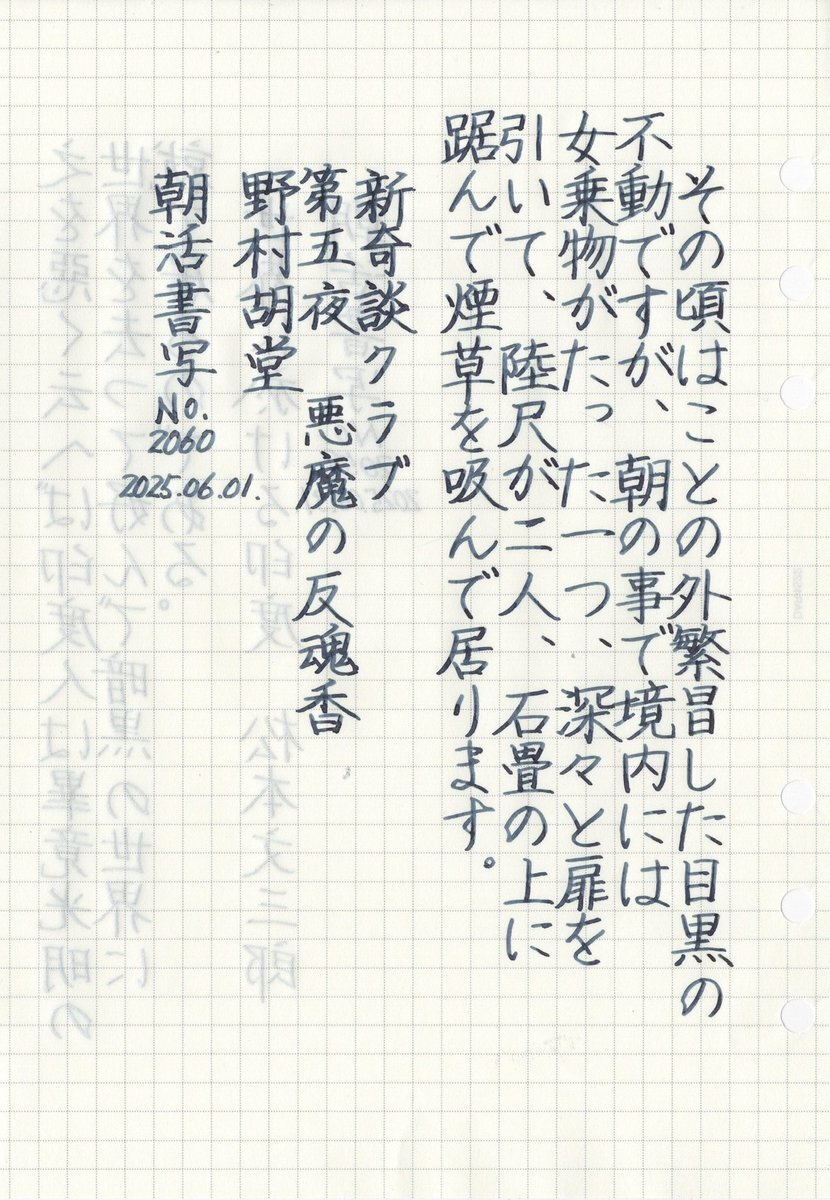 その頃はことの外繁昌した目黒の
不動ですが、朝の事で境内には
女乗物がたった一つ、深々と扉を
引いて、陸尺が二人、石畳の上に
踞んで煙草を吸んで居ります。
新奇談クラブ
第五夜 悪魔の反魂香
野村胡堂
朝活書写
No.
2060
2025.06.01.